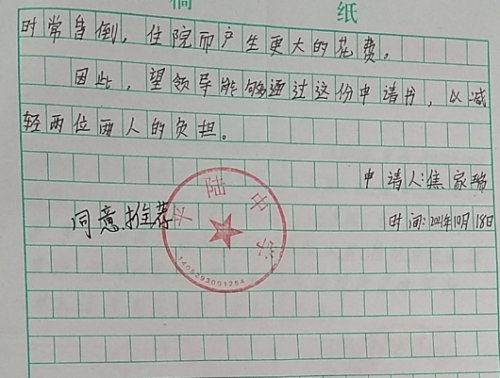 稿 纸
时常昏倒，住院而产生更大的花费。
因此，望领导能够通过这份申请书，以减
轻两位两人的负担。
申请人：焦家瑞
同意推荐
时间：2021年10月18日
平陆中学
1408293001254